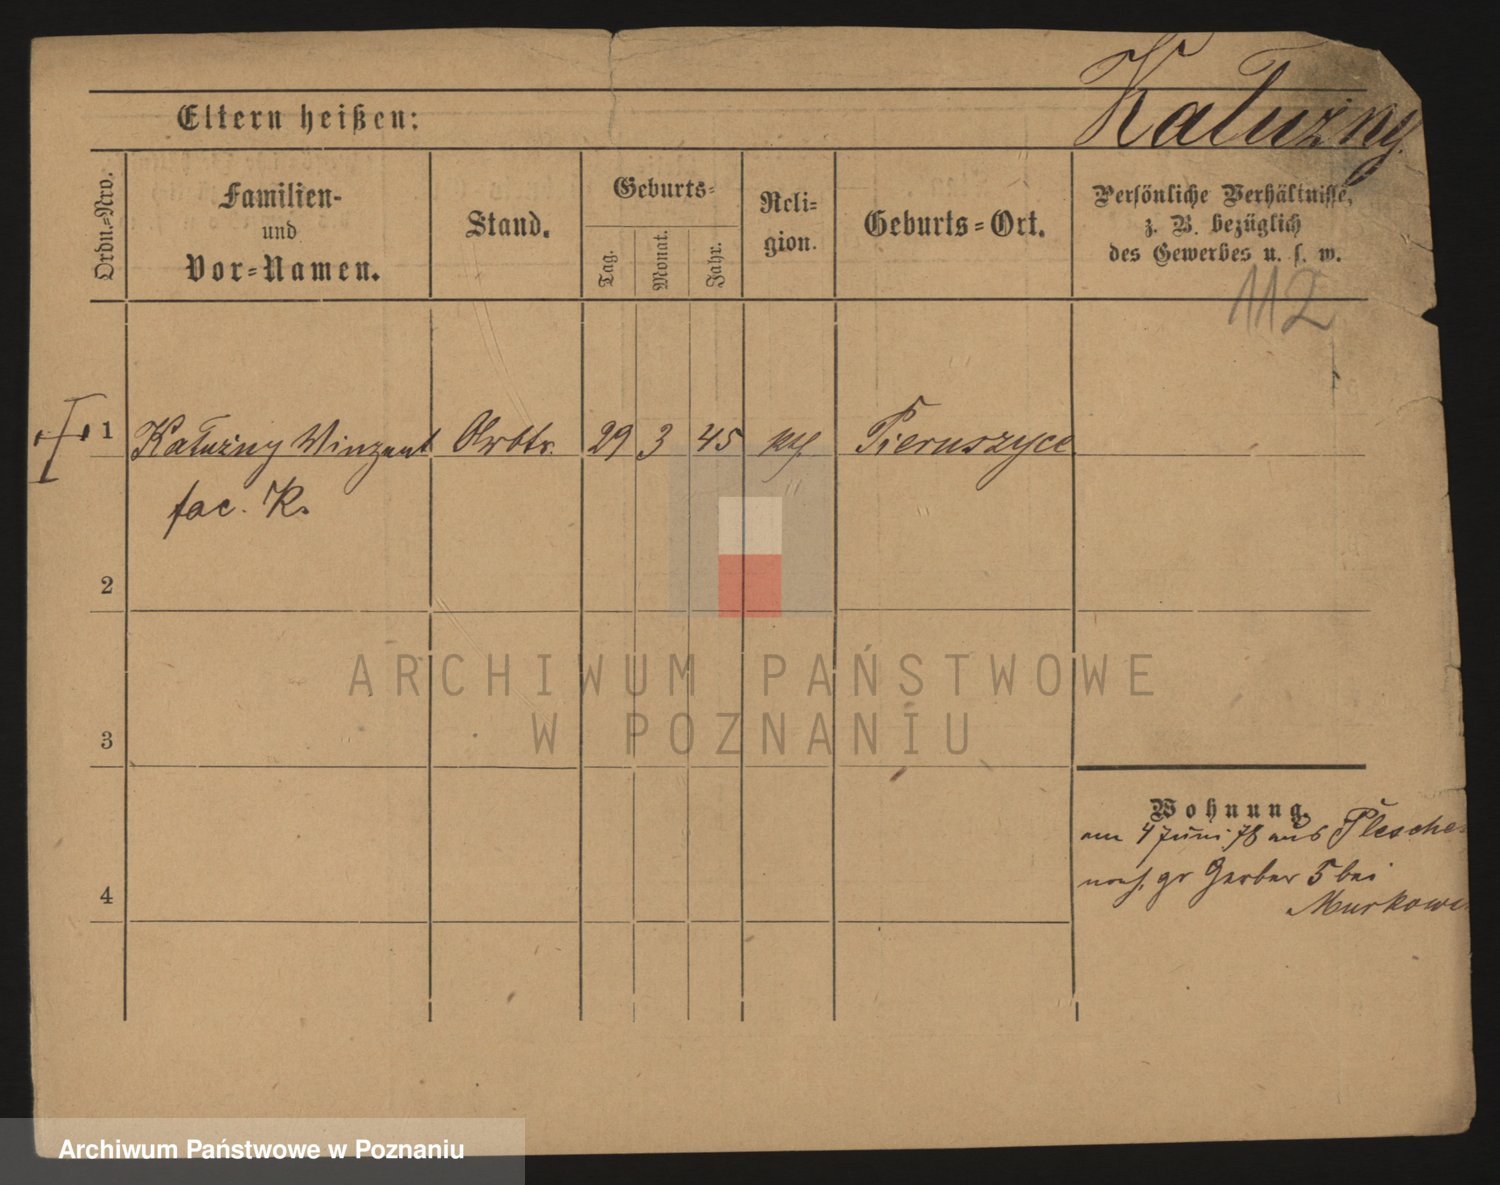 Kałużny.
Eltern heißen:
Ordn.-Nro.
Familien-
und
Vor-Namen.
Stand.
Geburts-
Tag.
Monat.
Jahr.
Reli-
gion.
Geburts-Ort.
Persönliche Verhältnisse,
z. B. bezüglich
des Gewerbes u. s. w.
112
1 Kałużny Winzent Arbtr. 29 3 45 kth Pieruszyce
fac. K.
2
3
4
Wohnung.
am 4 Juni 78 aus Plesche
nach gr Gerber 5 bei
Murkows
ARCHIWUM PAŃSTWOWE
W POZNANIU
Archiwum Państwowe w Poznaniu